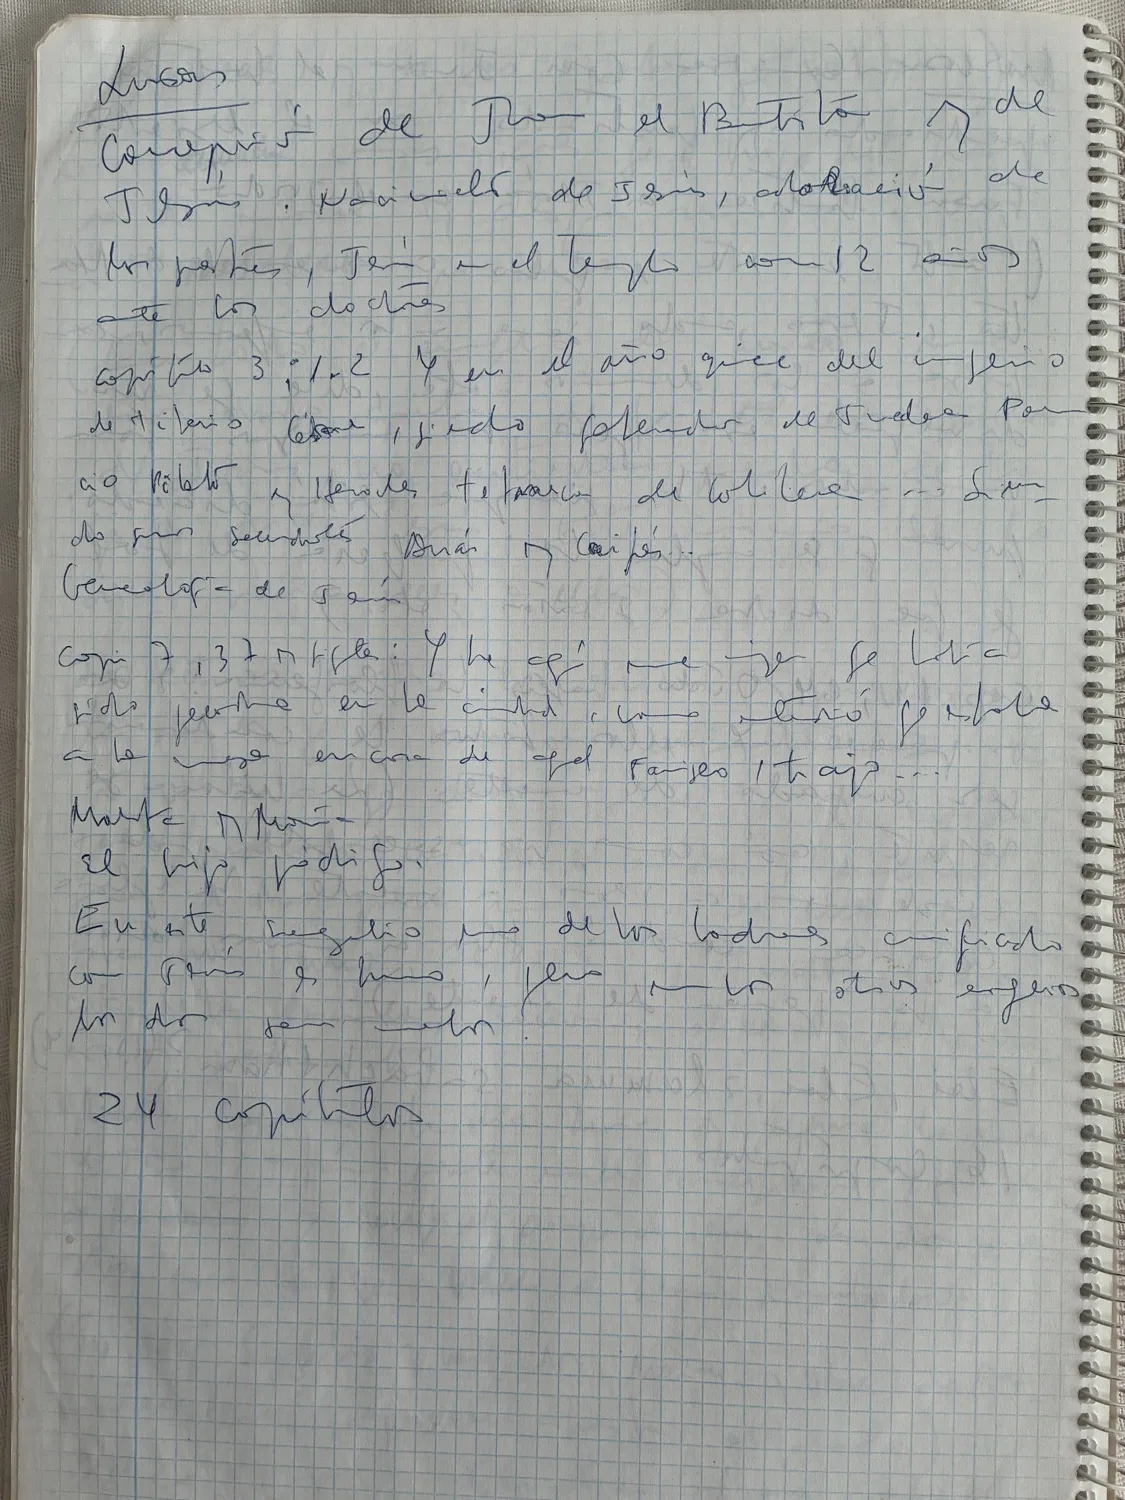 Lucas
Concepción de Juan el Bautista y de
Jesús. Nacimiento de Jesús, adoración de
los pastores, Jesús en el templo con 12 años
ante los doctores
capítulo 3:1-2 Y en el año quince del imperio
de Tiberio César, siendo gobernador de Judea Pon
cio Pilato y Herodes tetrarca de Galilea ... Sien
do sumos sacerdotes Anás y Caifás...
Genealogía de Jesús
Capi 7,37 y sigtes: Y he aquí una mujer que había
sido pecadora en la ciudad, como entendió que estaba
a la mesa en casa de aquel Fariseo, trajo...
Marta y María
El hijo pródigo.
En este evangelio uno de los ladrones crucificado
con Jesús es bueno, pero en los otros evangelios
los dos son malos.
24 capítulos